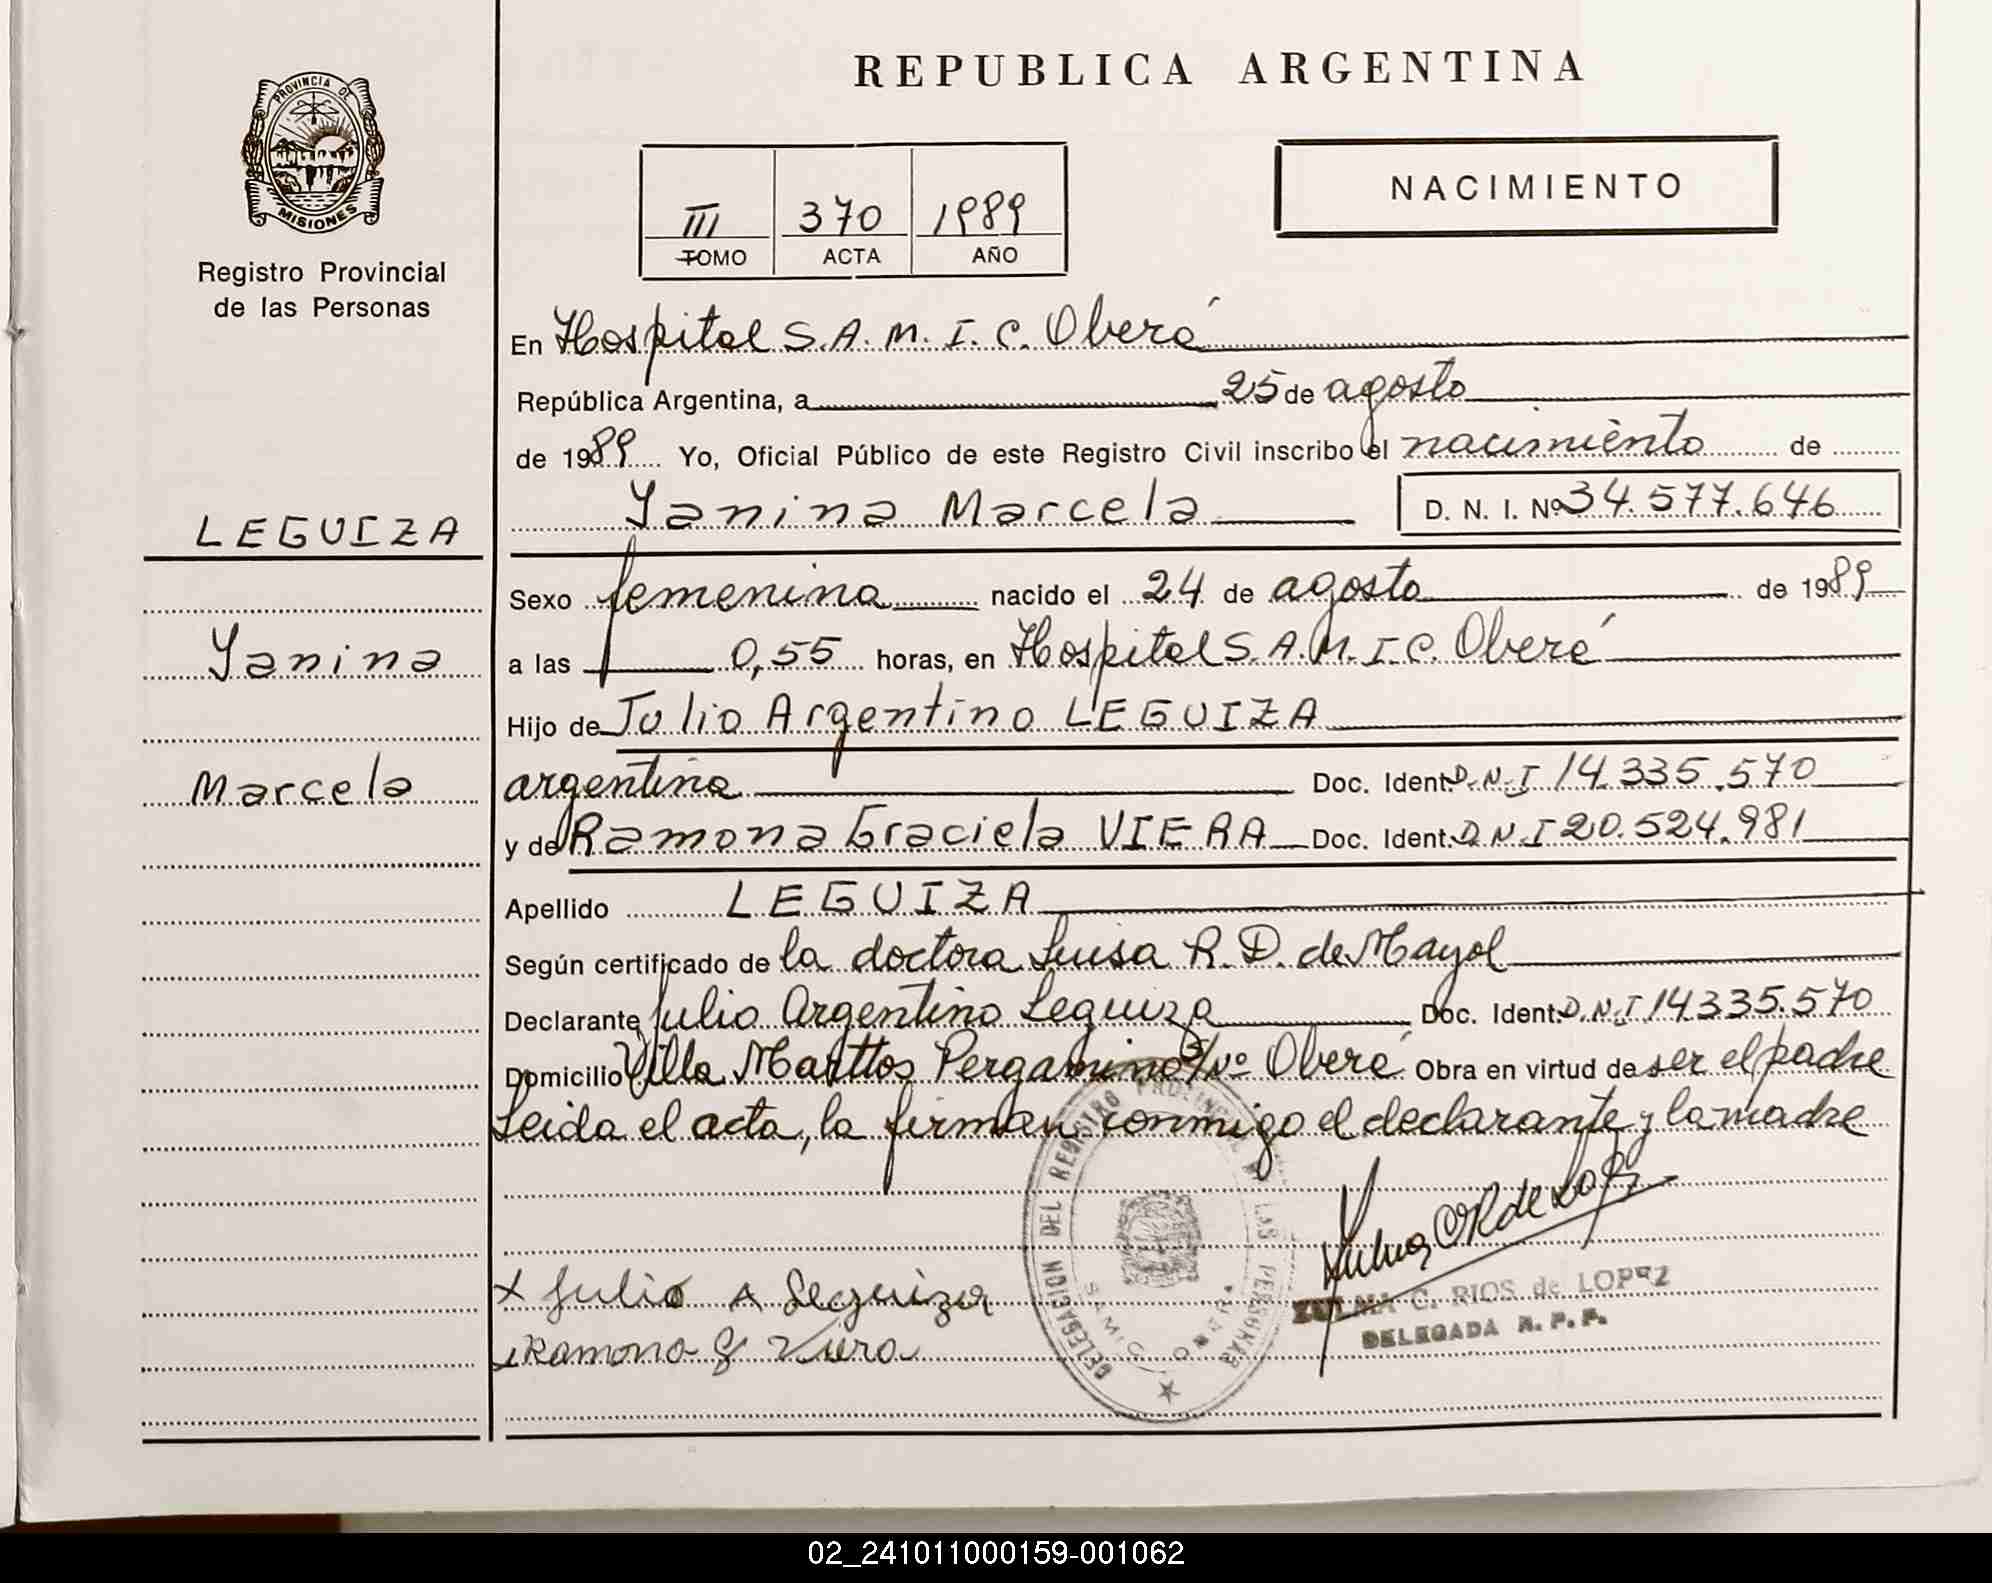 REPUBLICA ARGENTINA
PROVINCIA DE
MISIONES
Registro Provincial
de las Personas
III 370 1989
TOMO ACTA AÑO
NACIMIENTO
En Hospital S.A.M.I.C. Oberá
República Argentina, a 25 de agosto
de 1989 Yo, Oficial Público de este Registro Civil inscribo el nacimiento de
Yanina Marcela D. N. I. Nº 34.577.646
LEGUIZA
Yanina
Marcela
Sexo femenina nacido el 24 de agosto de 1989
a las 0,55 horas, en Hospital S.A.M.I.C. Oberá
Hijo de Julio Argentino LEGUIZA
argentina Doc. Ident. D.N.I 14.335.570
y de Ramona Graciela VIERA Doc. Ident. D.N.I 20.524.981
Apellido LEGUIZA
Según certificado de la doctora Luisa R. D. de Mayol
Declarante Julio Argentino Leguiza Doc. Ident. D.N.I 14.335.570
Domicilio Villa Marttos Pergamino S/Nº Oberá Obra en virtud de ser el padre
Leida el acta, la firman conmigo el declarante y la madre
DELEGACION DEL REGISTRO PROVINCIAL DE LAS PERSONAS
S.A.M.I.C.
x Julio A Leguiza
x Ramona G Viera
ZULMA C. RIOS de LOPEZ
DELEGADA R. P. P.
02_241011000159-001062